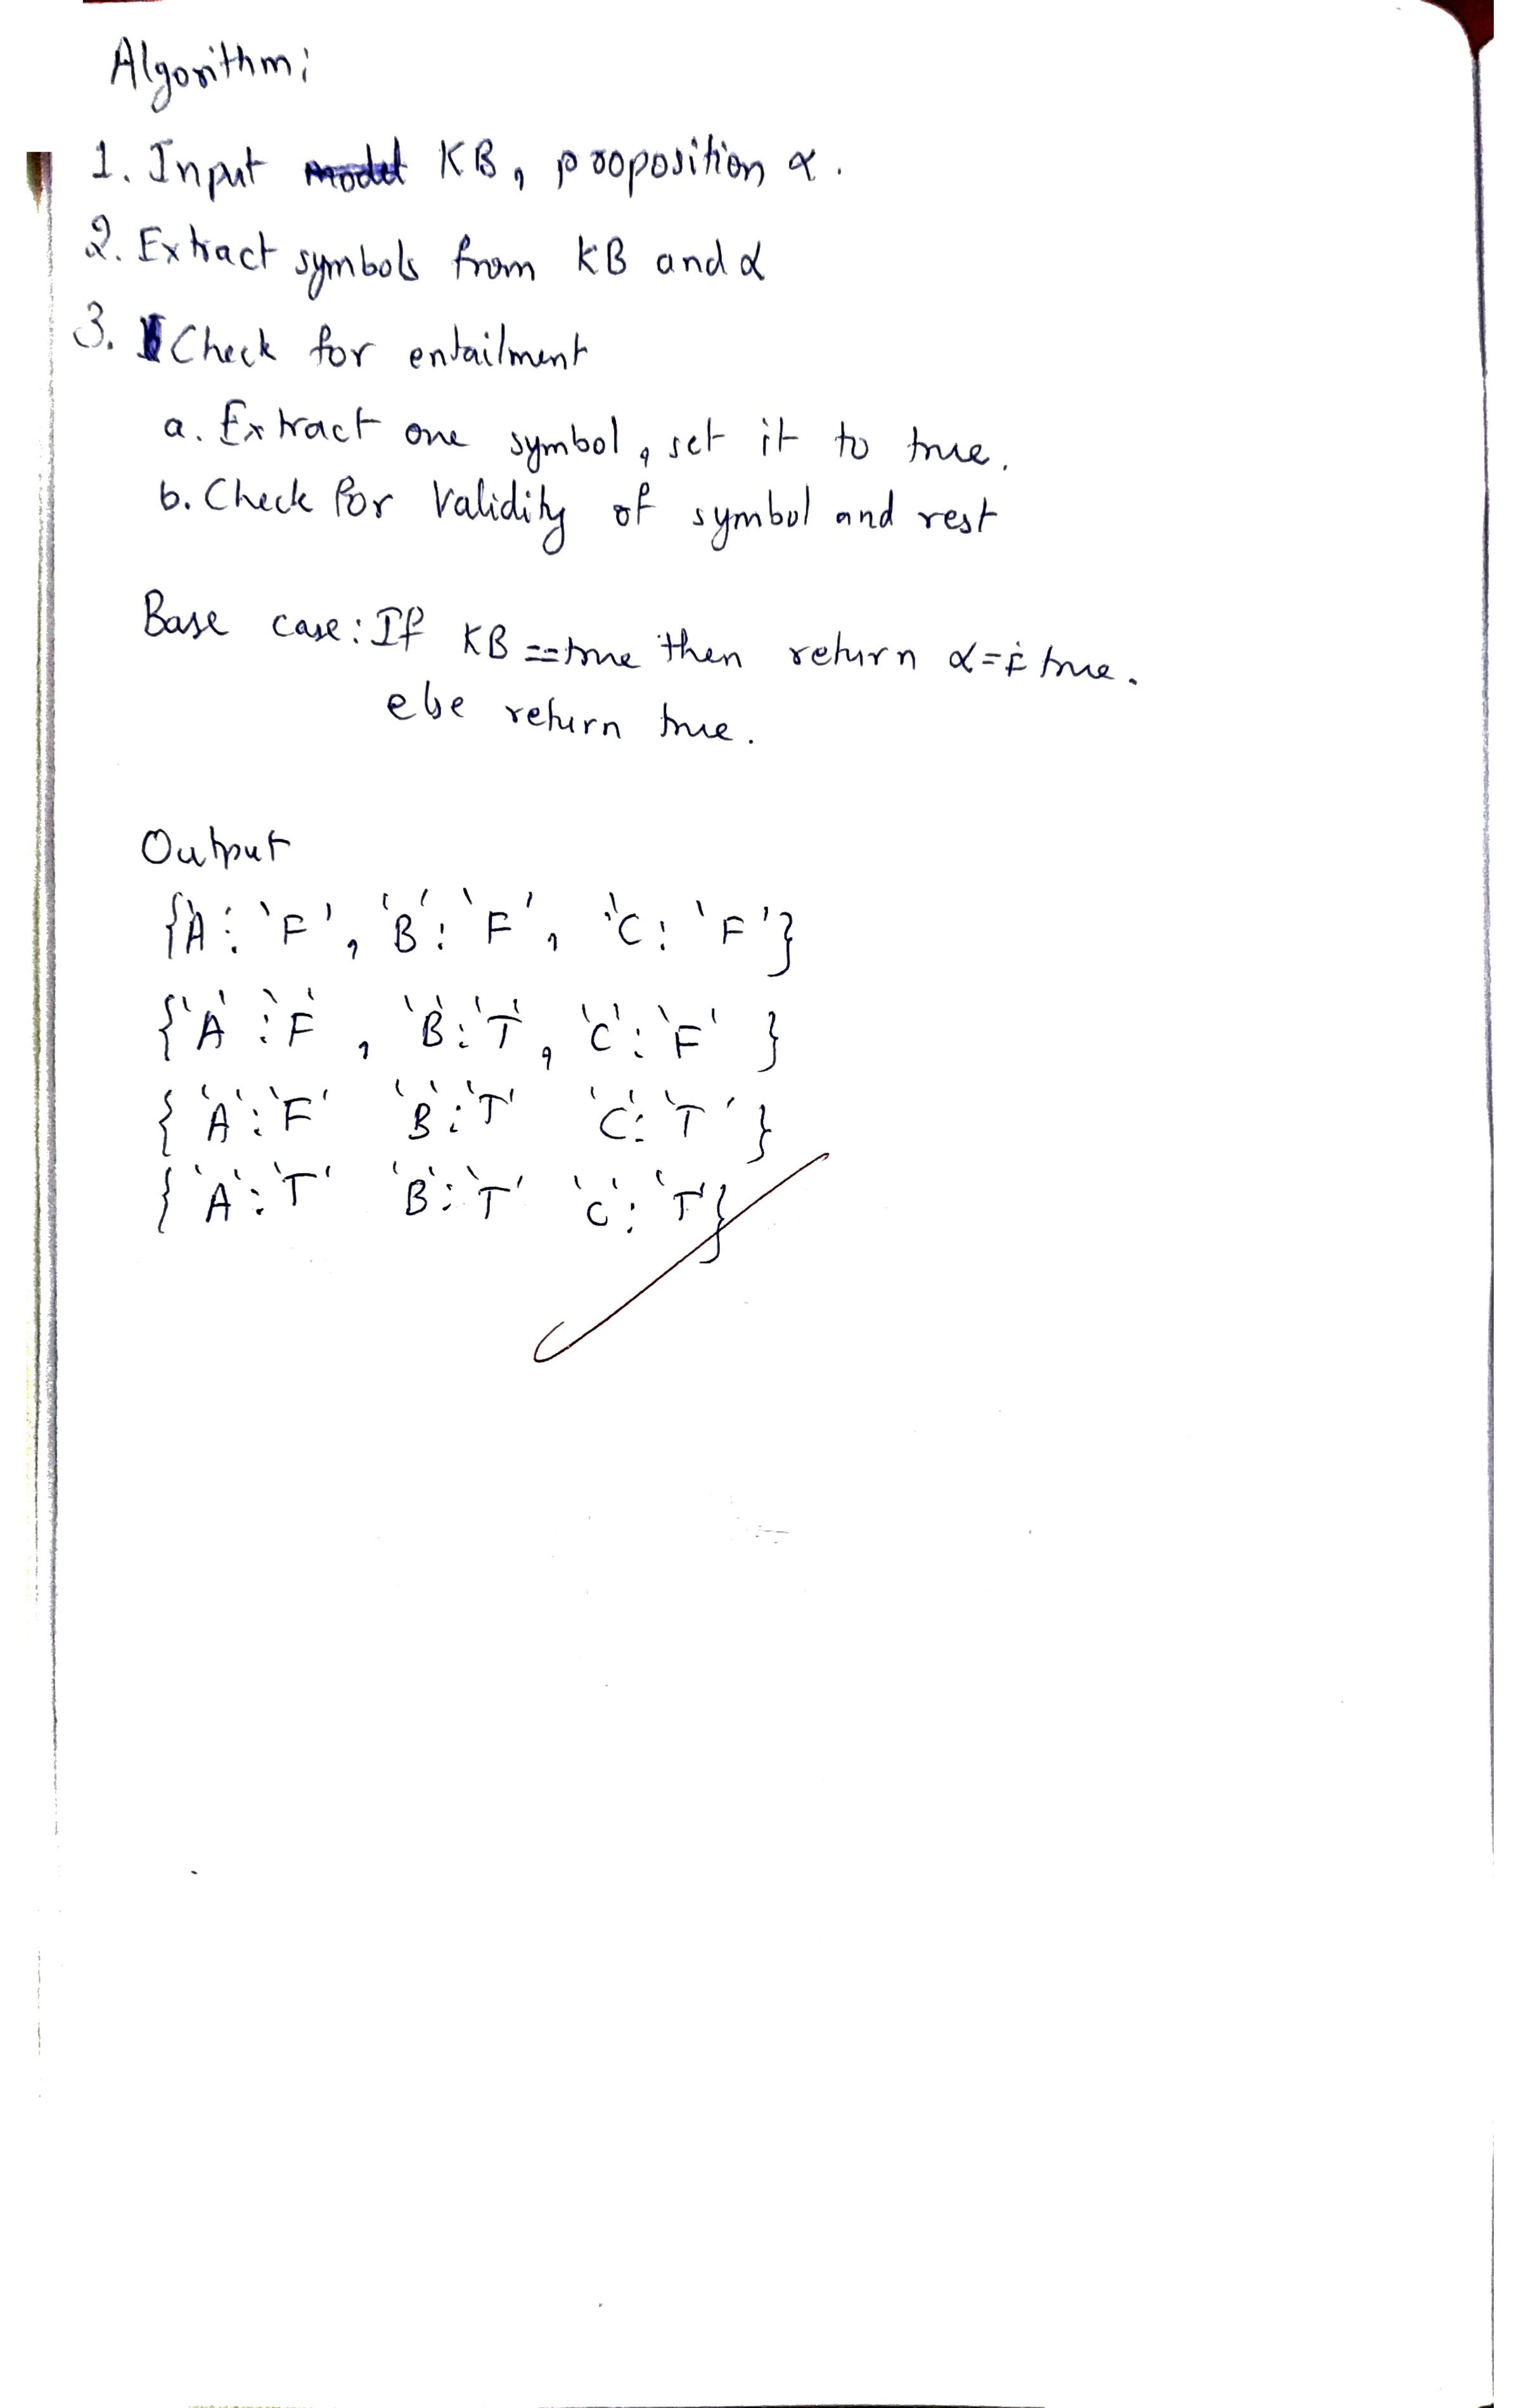 Algorithm:
1. Input model KB, proposition α.
2. Extract symbols from KB and α
3. Check for entailment
a. Extract one symbol, set it to true.
b. Check for validity of symbol and rest
Base case: If KB == true then return α == true.
else return true.
Output
{'A': 'F', 'B': 'F', 'C: 'F'}
{'A' : 'F', 'B': 'T', 'C': 'F' }
{ 'A': 'F' 'B': 'T' 'C': 'T' }
{ 'A': 'T' 'B': 'T' 'C': 'T'}